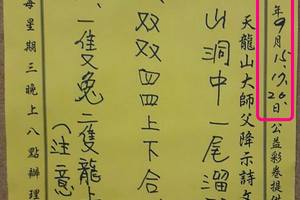 年9月15.17.20.日公益彩券提供
天龍山大師父降示詩文
山洞中一尾溜
双双四四上下合
一隻兔二隻龍上
(注意
每星期三晚上八點辦理